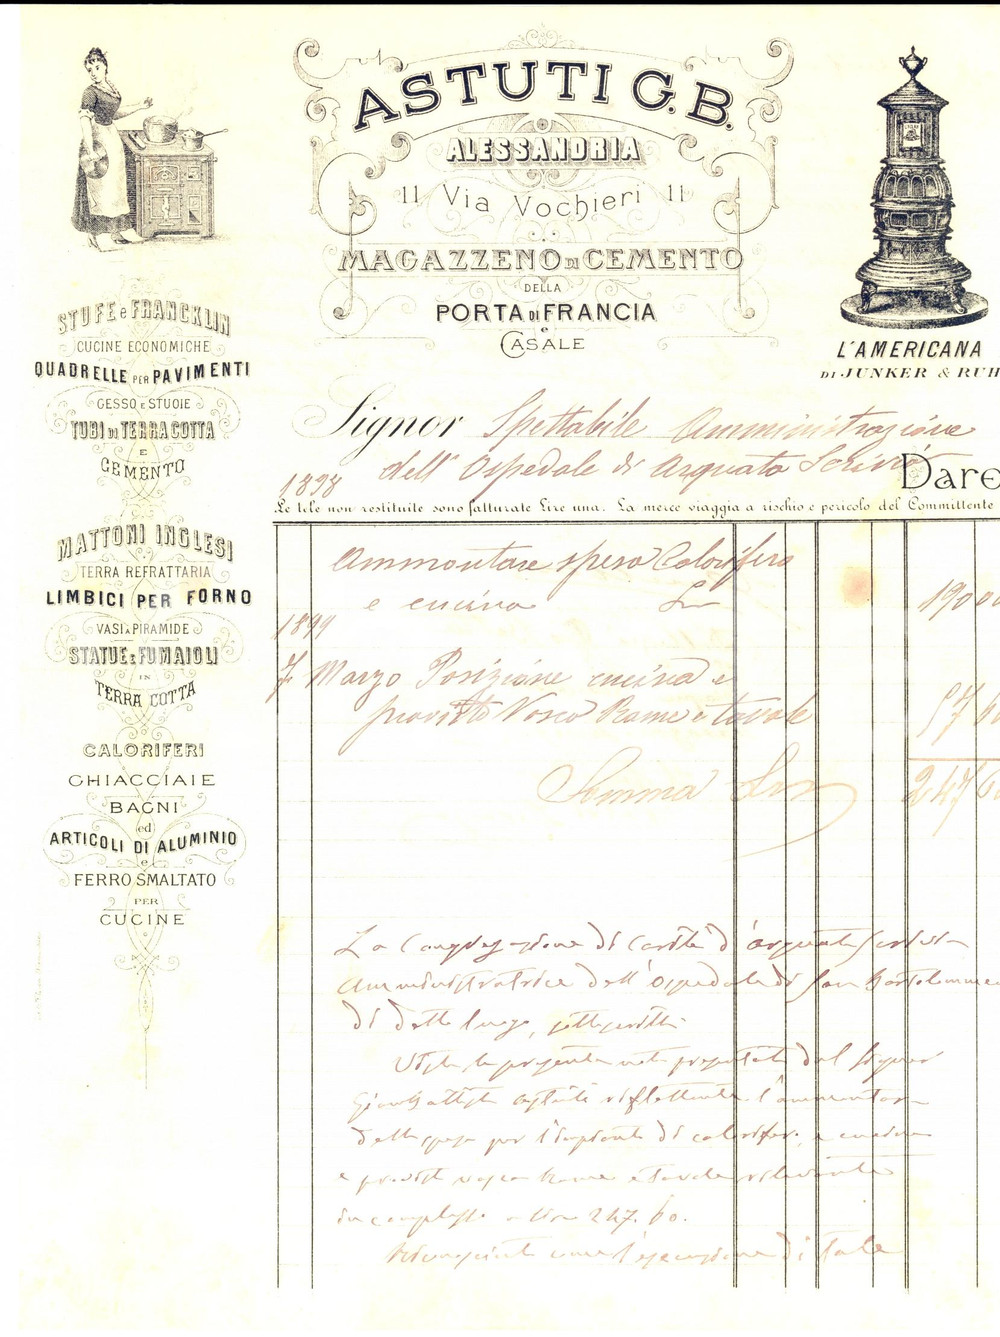 ASTUTI G.B.
ALESSANDRIA
11 Via Vochieri 11
MAGAZZENO DI CEMENTO
DELLA
PORTA DI FRANCIA
e
CASALE
L'AMERICANA
DI JUNKER & RUH
STUFE e FRANCKLIN
CUCINE ECONOMICHE
QUADRELLE PER PAVIMENTI
GESSO E STUOIE
TUBI DI TERRA COTTA
E
CEMENTO
MATTONI INGLESI
TERRA REFRATTARIA
LIMBICI PER FORNO
VASI A PIRAMIDE
STATUE E FUMAIOLI
IN
TERRA COTTA
CALORIFERI
GHIACCIAIE
BAGNI
ed
ARTICOLI DI ALUMINIO
e
FERRO SMALTATO
PER
CUCINE
Signor Spettabile Amministrazione
dell' Ospedale di Arquata Scrivia
Dare
1898
Le tele non restituite sono fatturate Lire una. La merce viaggia a rischio e pericolo del Committente
Ammontare spesa Calorifero
e cucina 190 00
1899
7 Marzo Posizione cucina e
provisto Vasca Rame e tavole 57 60
Somma 247 60
La Congregazione di Carità d'Arquata Scrivia
Amministratrice dell'Ospedale di San Bartolomeo
di detto luogo,
Vista la presente nota presentata dal Signor
Giovan Battista Astuti riflettente l'ammontare
della spesa per l'impianto di calorifero, e cucina
e provista vasca Rame e tavole rilevante
in complesso a Lire 247.60.
Riconosciuta l'esecuzione di tale